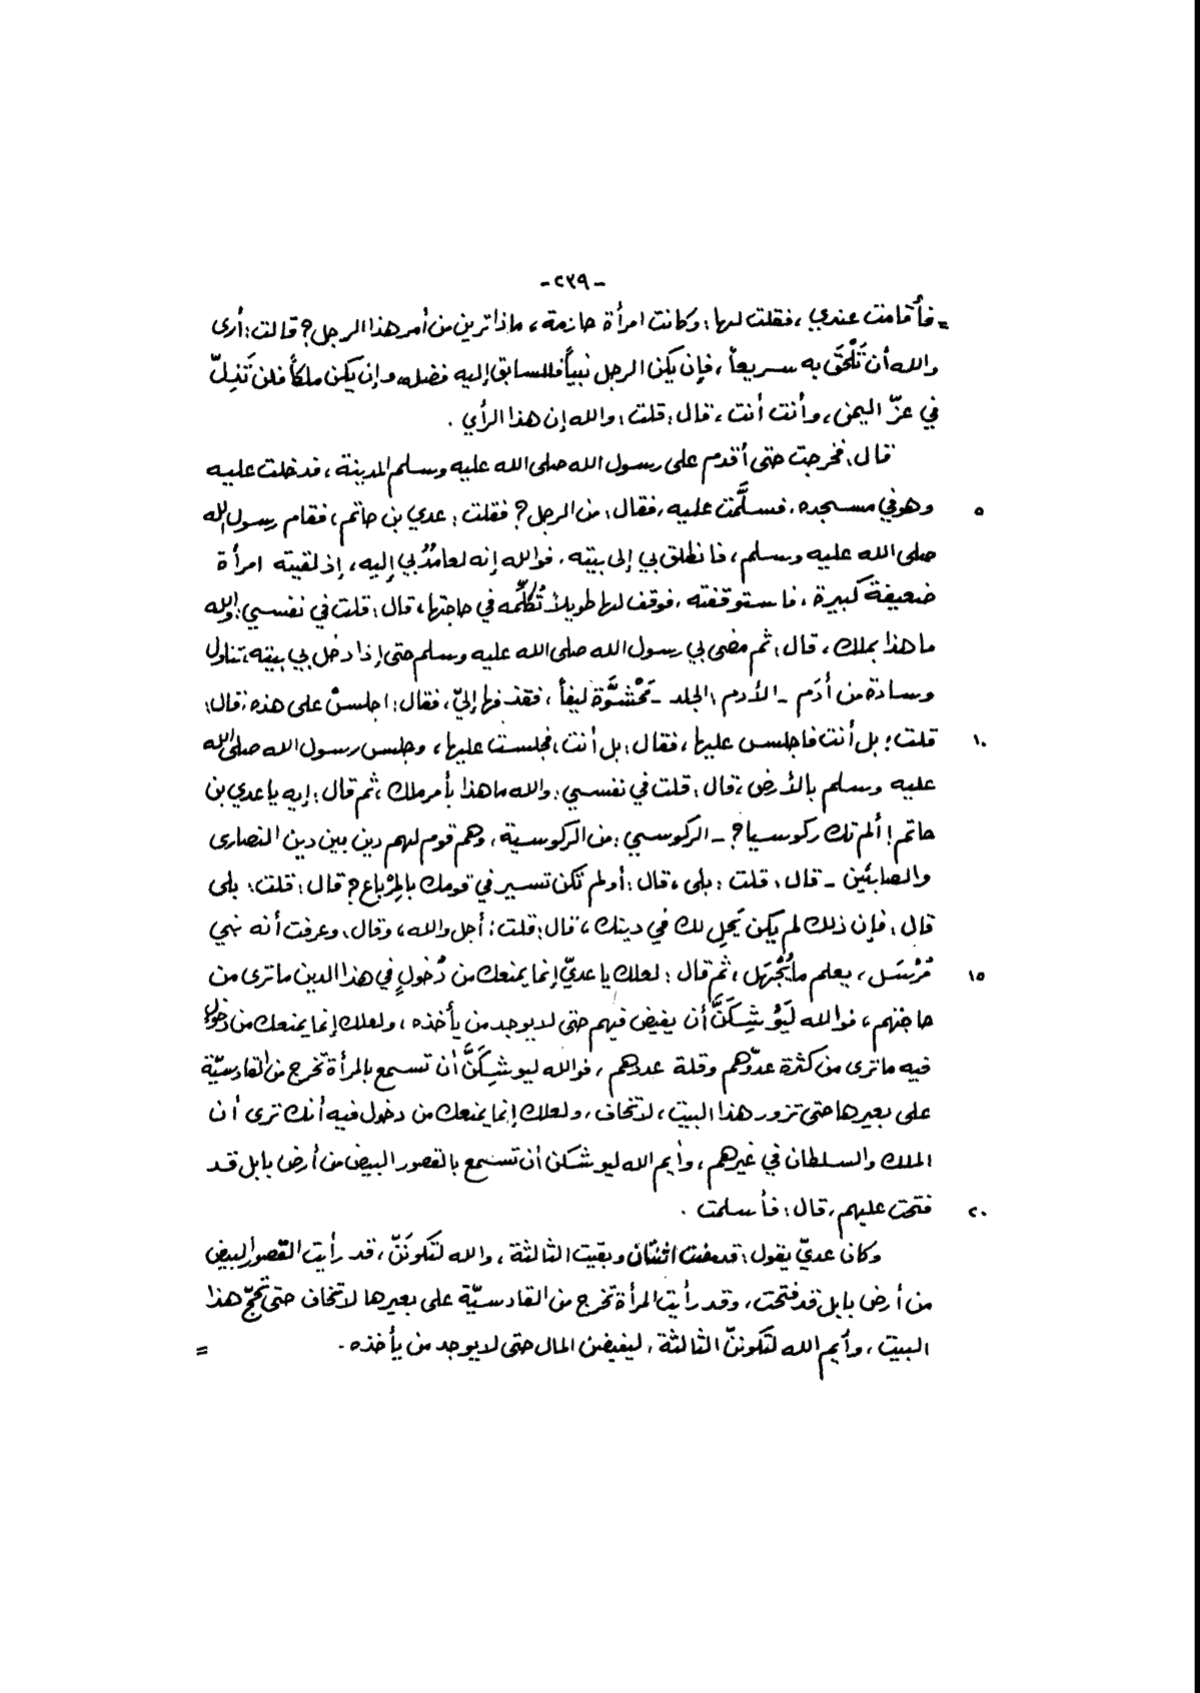 -٢٣٩-
= فأقامت عندي، فقلت لها: وكانت امرأة حازمة، ماذا ترين من أمر هذا الرجل؟ قالت: أرى
والله أن تَلْحَق به سريعاً، فإن يكن الرجل نبياً فللسابق إليه فضله وإن يكن ملكاً فلن تَذِلّ
في عزّ اليمن، وأنت أنت، قال: قلت: والله إن هذا الرأي.
قال: فخرجت حتى أقدم على رسول الله صلى الله عليه وسلم المدينة، فدخلت عليه
٥ وهو في مسجده، فسلَّمت عليه، فقال: من الرجل؟ فقلت: عدي بن حاتم، فقام رسول الله
صلى الله عليه وسلم، فانطلق بي إلى بيته، فوالله إنه لعامدٌ بي إليه، إذ لقيته امرأة
ضعيفة كبيرة، فاستوقفته، فوقف لها طويلاً تُكلِّمه في حاجتها، قال: قلت في نفسي: والله
ما هذا بملك، قال: ثم مضى بي رسول الله صلى الله عليه وسلم حتى إذا دخل بي بيته، تناول
وسادة من أدَم - الأدم: الجلد - مَحْشوَّة ليفاً، فقذفها إليّ، فقال: اجلسْ على هذه، قال:
١٠ قلت: بل أنت فاجلس عليها، فقال: بل أنت، فجلست عليها، وجلس رسول الله صلى الله
عليه وسلم بالأرض، قال: قلت في نفسي: والله ما هذا بأمر ملك، ثم قال: إيه يا عدي بن
حاتم! ألم تك ركوسيا؟ - الركوسي: من الركوسية، وهم قوم لهم دين بين دين النصارى
والصابئين - قال: قلت: بلى، قال: أولم تكن تسير في قومك بالمِرْباع؟ قال: قلت: بلى
قال: فإن ذلك لم يكن يَحِل لك في دينك، قال: قلت: أجل والله، وقال: وعرفت أنه نبي
١٥ مُرْسَل، يعلم ما يُجْهَل، ثم قال: لعلك يا عديّ إنما يمنعك من دُخولٍ في هذا الدين ما ترى من
حاجتهم، فوالله لَيُوشِكَنَّ أن يفيض فيهم حتى لا يوجد من يأخذه، ولعلك إنما يمنعك من دخولٍ
فيه ما ترى من كثرة عدوّهم وقلة عددهم، فوالله ليوشِكَنَّ أن تسمع بالمرأة تخرج من القادسيّة
على بعيرها حتى تزور هذا البيت، لا تخاف، ولعلك إنما يمنعك من دخول فيه أنك ترى أن
الملك والسلطان في غيرهم، وأيم الله ليوشكن أن تسمع بالقصور البيض من أرض بابل قد
٢٠ فتحت عليهم، قال: فأسلمت.
وكان عديّ يقول: قد مضت اثنتان وبقيت الثالثة، والله لتكونَنّ، قد رأيت القصور البيض
من أرض بابل قد فتحت، وقد رأيت المرأة تخرج من القادسيّة على بعيرها لا تخاف حتى تحجّ هذا
البيت، وأيم الله لتكوننّ الثالثة، ليفيضن المال حتى لا يوجد من يأخذه. =